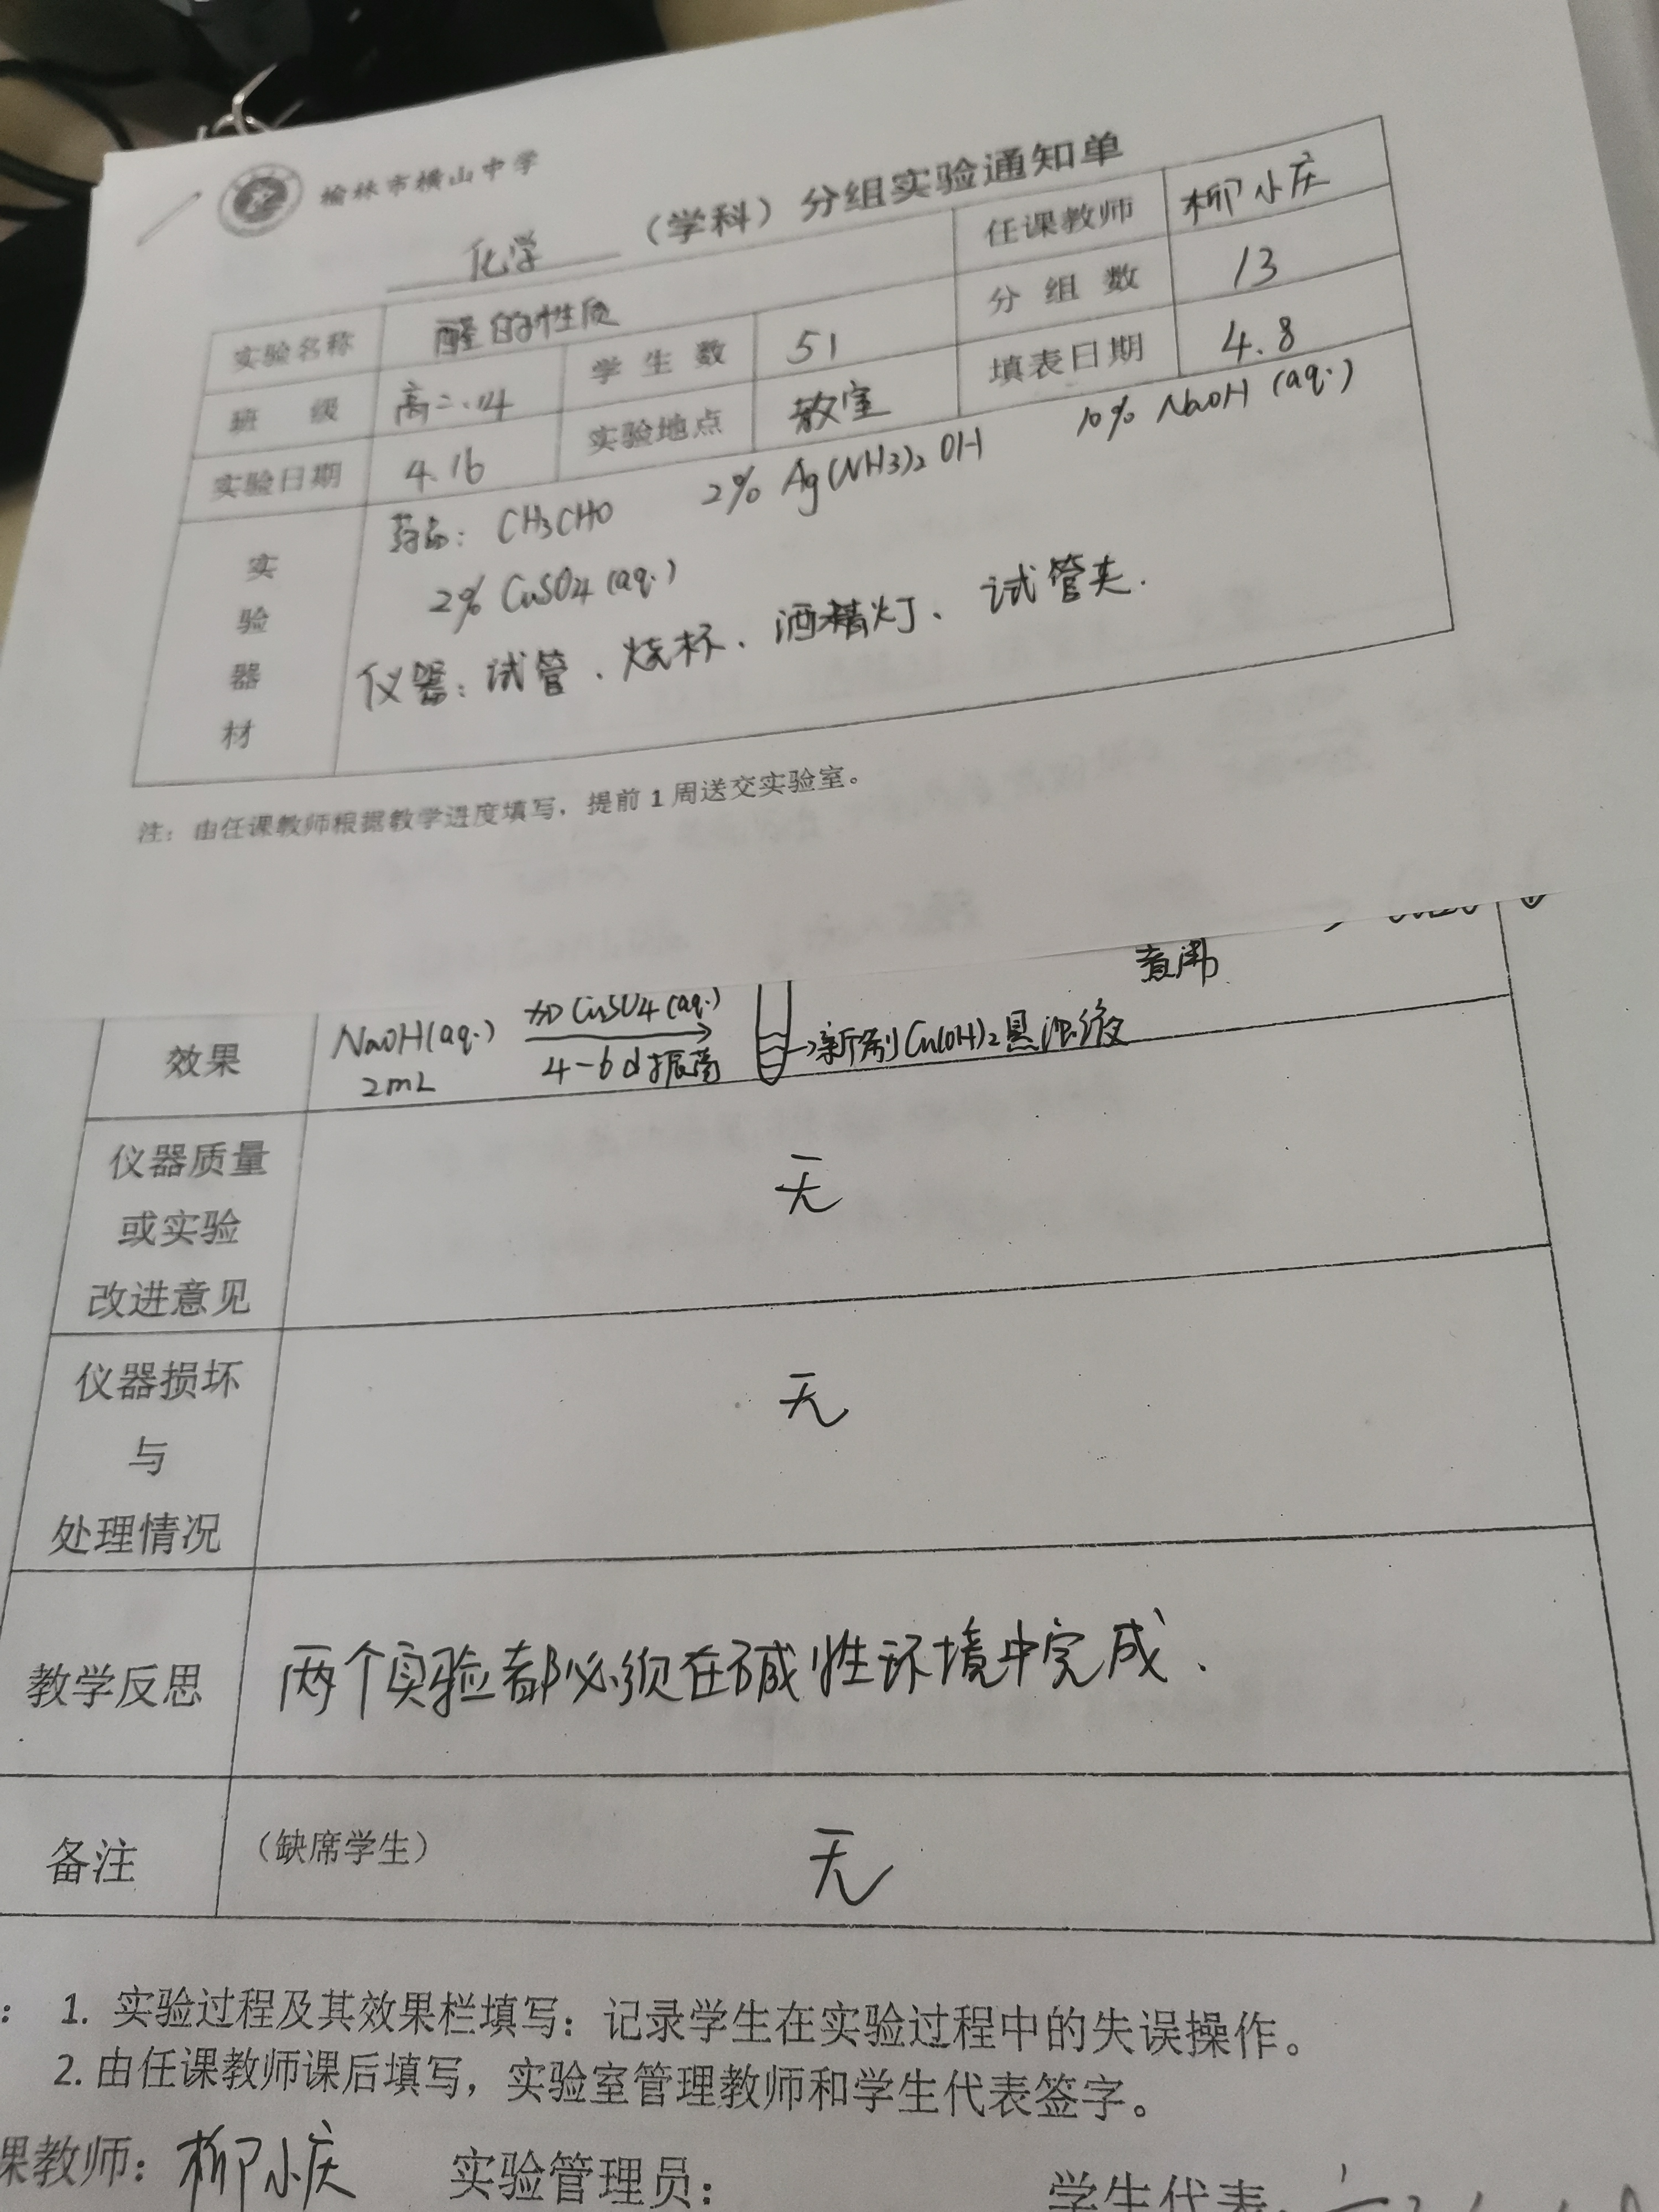 榆林市横山中学
化学（学科）分组实验通知单
实验名称 醛的性质 任课教师 柳小庆
班 级 高二.14 学 生 数 51 分 组 数 13
实验日期 4.16 实验地点 教室 填表日期 4.8
实验器材
药品： CH3CHO 2% Ag(NH3)2OH 10% NaOH (aq.)
2% CuSO4 (aq.)
仪器：试管、烧杯、酒精灯、试管夹.
注：由任课教师根据教学进度填写，提前 1 周送交实验室。
煮沸
效果 NaOH(aq.) 2mL 加CuSO4(aq.) 4-6d振荡 →新制Cu(OH)2悬浊液
仪器质量或实验改进意见 无
仪器损坏与处理情况 无
教学反思 两个实验都必须在碱性环境中完成.
备注 （缺席学生） 无
： 1. 实验过程及其效果栏填写：记录学生在实验过程中的失误操作。
2. 由任课教师课后填写，实验室管理教师和学生代表签字。
课教师：柳小庆 实验管理员： 学生代表：